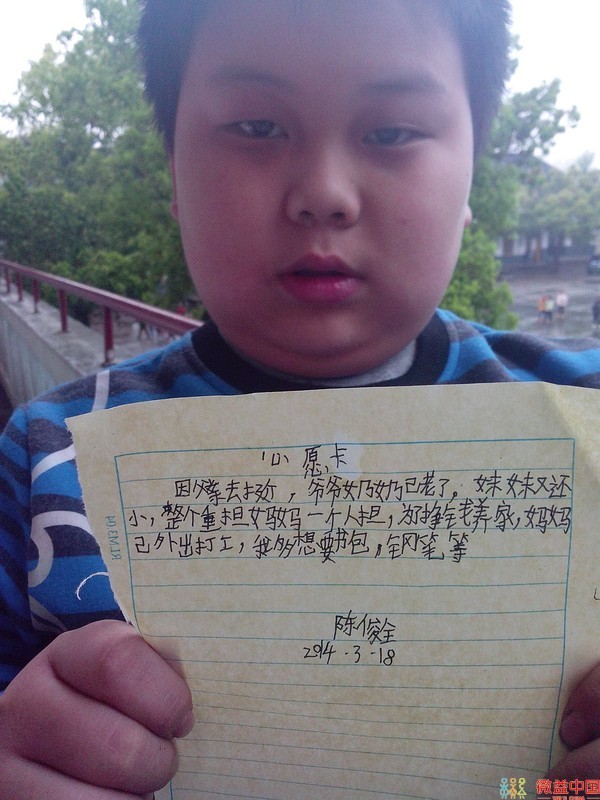 心愿卡
因父亲去，爷爷奶奶已老了，妹妹又还
小，整个重担妈妈一个人担，为挣钱养家，妈妈
已外出打工，我多想要书包，钢笔等
陈俊全
2014-3-18
微益中国